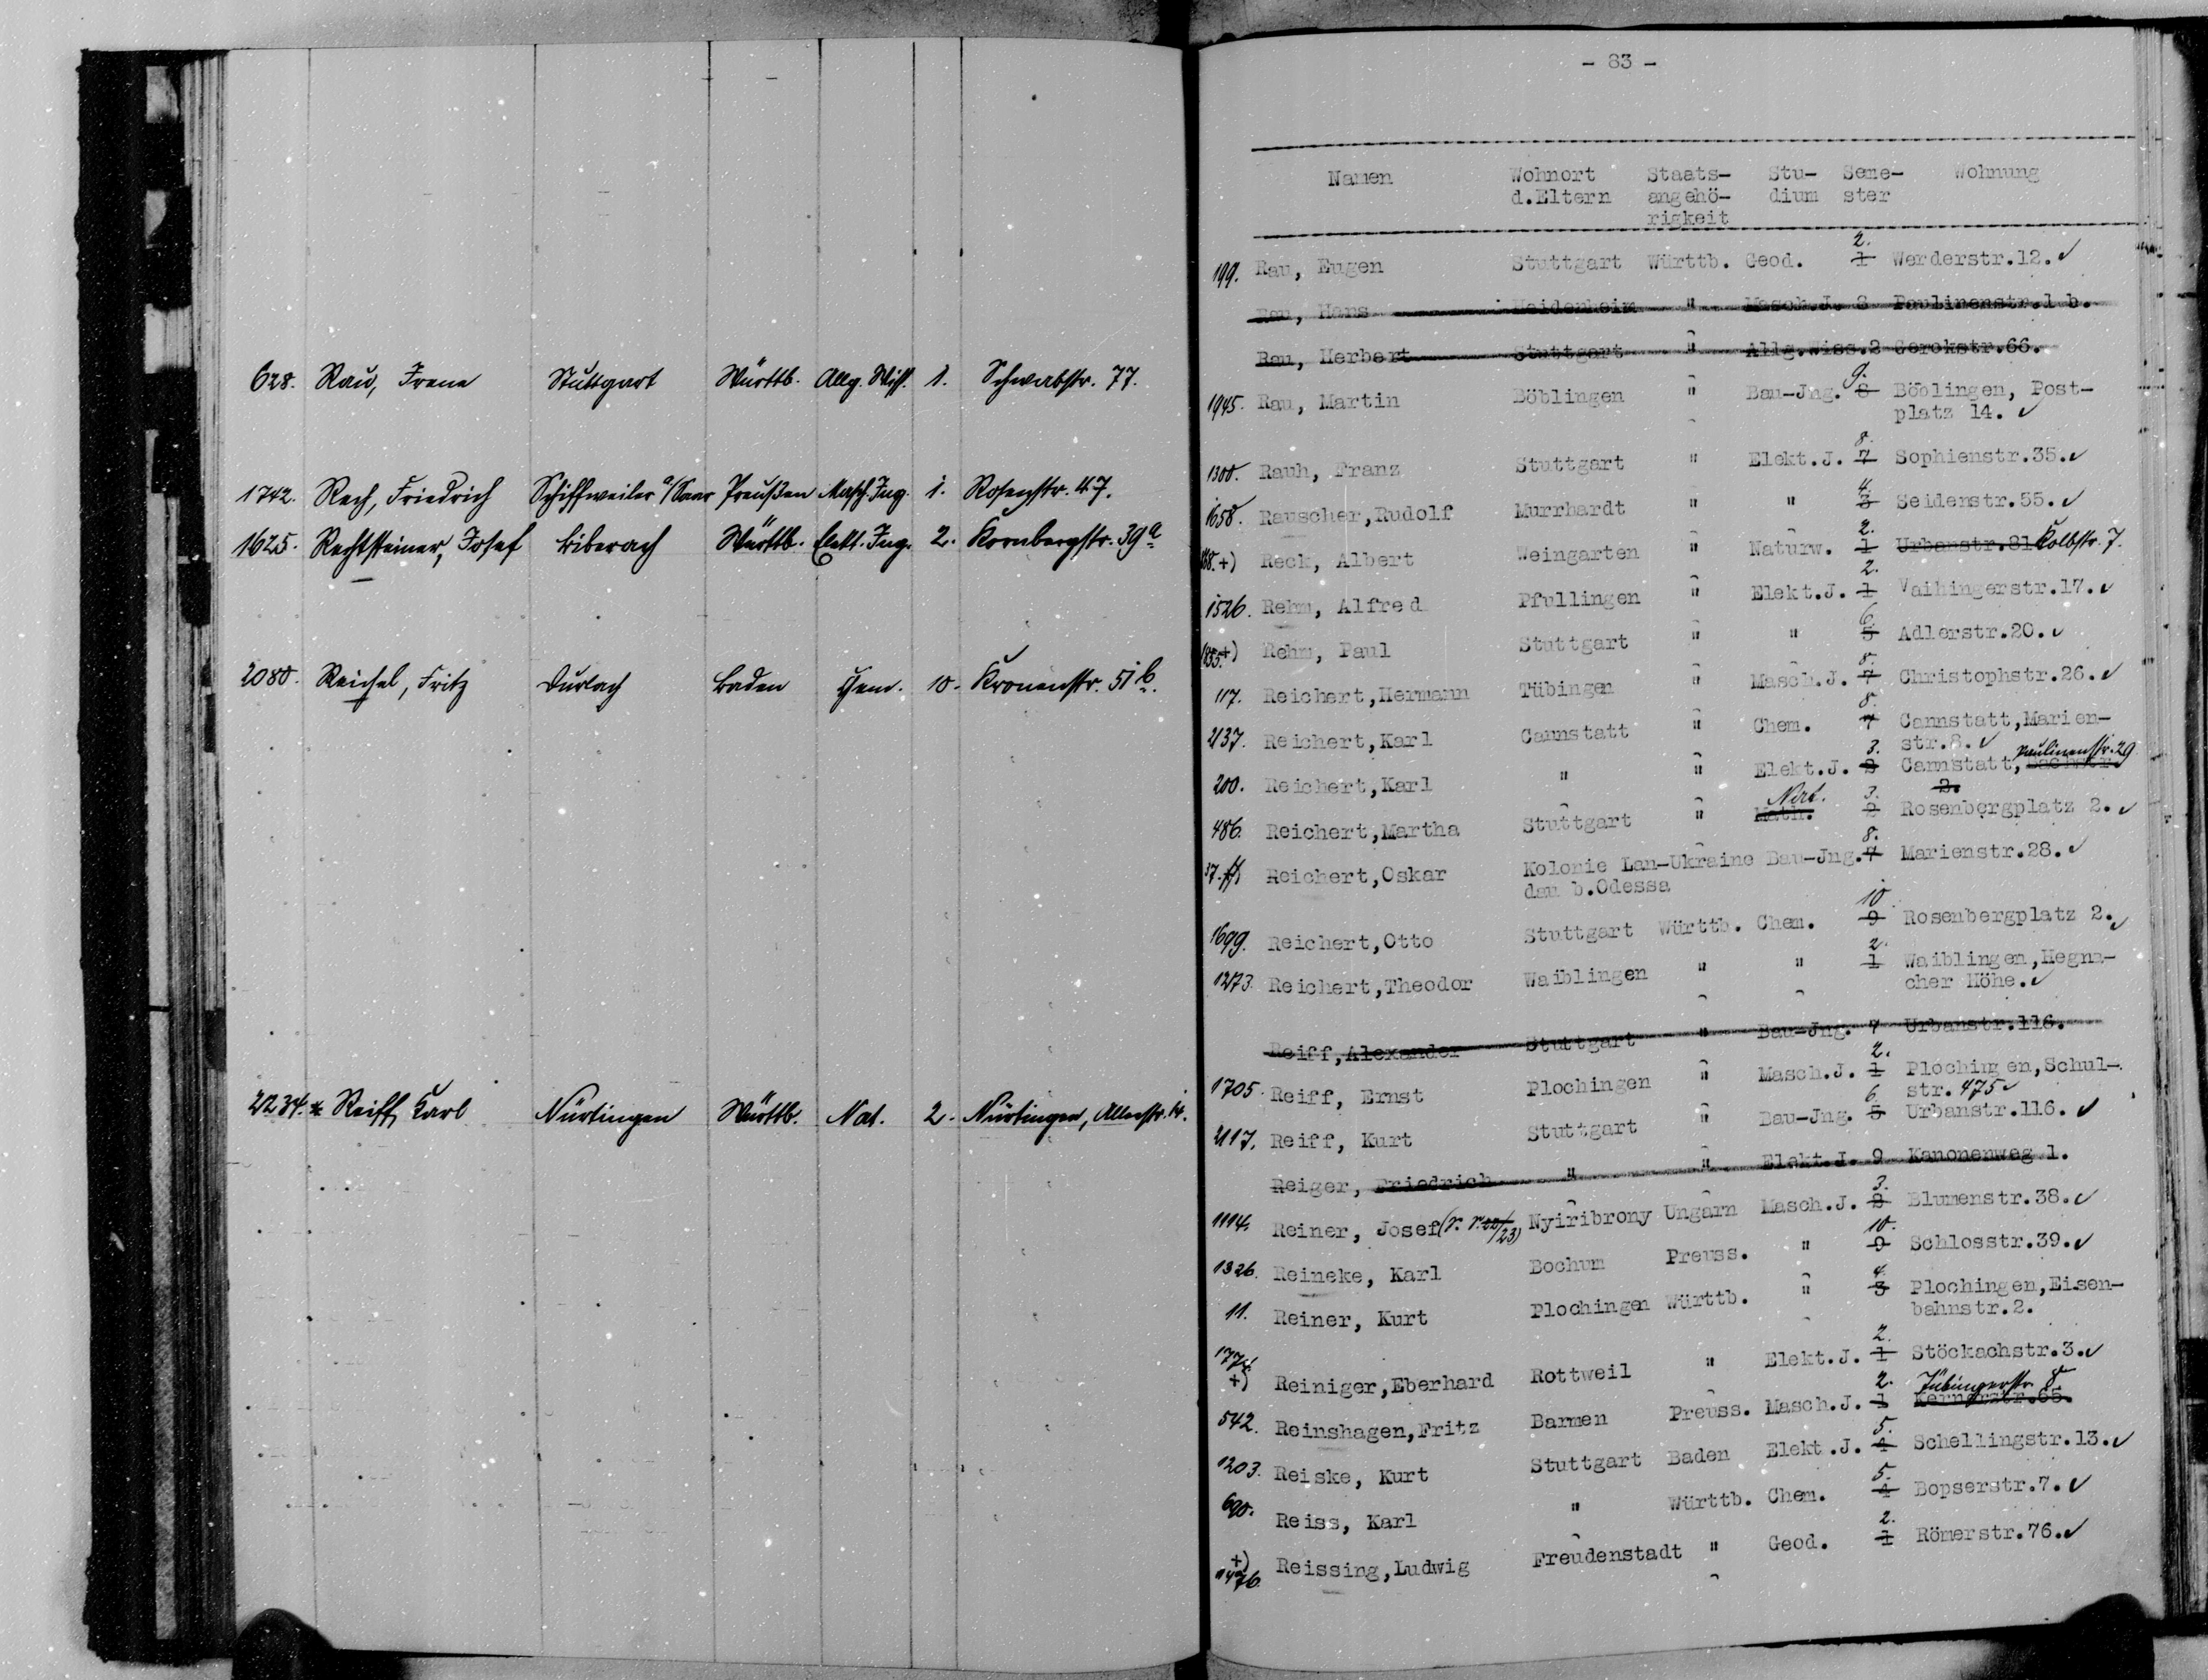 628. Rau, Irene Stuttgart Württb. Allg. Wiss. 1. Schwabstr. 77.
1742. Rech, Friedrich Schiffweiler a/Saar Preußen Masch. Ing. 1. Rosenstr. 47.
1625. Rechtsteiner, Josef Biberach Württb. Elekt. Ing. 2. Kornbergstr. 39a
2080. Reichel, Fritz Durlach Baden Chem. 10. Kronenstr. 51b.
2234. * Reiff, Karl Nürtingen Württb. Nat. 2. Nürtingen, Alleestr. 14.
- 83 -
Namen Wohnort Staats- Stu- Seme- Wohnung
d.Eltern angehö- dium ster
rigkeit
2.
199. Rau, Eugen Stuttgart Württb. Geod. 1 Werderstr.12. ✓
Rau, Hans Heidenheim " Masch.J. 3 Paulinenstr.1 b.
Rau, Herbert Stuttgart " Allg.Wiss.2 Gerokstr.66.
9.
1945. Rau, Martin Böblingen " Bau-Jng. 8 Böblingen, Post-
platz 14. ✓
8.
1300. Rauh, Franz Stuttgart " Elekt.J. 7 Sophienstr.35. ✓
4.
1658. Rauscher,Rudolf Murrhardt " " 3 Seidenstr.55. ✓
2.
+) Reck, Albert Weingarten " Naturw. 1 Urbanstr.81 Kolbstr. 7.
2.
1526. Rehm, Alfred Pfullingen " Elekt.J. 1 Vaihingerstr.17. ✓
6.
+) Rehm, Paul Stuttgart " " 5 Adlerstr.20. ✓
8.
117. Reichert,Hermann Tübingen " Masch.J. 7 Christophstr.26. ✓
8.
2137. Reichert,Karl Cannstatt " Chem. 7 Cannstatt,Marien-
str.8. ✓
3. Paulinenstr. 29
200. Reichert,Karl " " Elekt.J. 2 Cannstatt, Bachstr.
2.
Nat. 3.
486. Reichert,Martha Stuttgart " Math. 2 Rosenbergplatz 2. ✓
8.
37. Reichert,Oskar Kolonie Lan-Ukraine Bau-Jng. 7 Marienstr.28. ✓
dau b.Odessa
10
1699. Reichert,Otto Stuttgart Württb. Chem. 9 Rosenbergplatz 2. ✓
2.
1273. Reichert,Theodor Waiblingen " " 1 Waiblingen,Hegna-
cher Höhe. ✓
Reiff,Alexander Stuttgart " Bau-Jng. 7 Urbanstr.116.
2.
1705. Reiff, Ernst Plochingen " Masch.J. 1 Plochingen,Schul-
str. 475 ✓
6.
2117. Reiff, Kurt Stuttgart " Bau-Jng. 5 Urbanstr.116. ✓
Reiger, Friedrich " " Elekt.J. 9 Kanonenweg 1.
3.
1114. Reiner, Josef Nyiribrony Ungarn Masch.J. 2 Blumenstr.38. ✓
10.
1326. Reineke, Karl Bochum Preuss. " 9 Schlosstr.39. ✓
4.
11. Reiner, Kurt Plochingen Württb. " 3 Plochingen,Eisen-
bahnstr.2.
2.
+) Reiniger,Eberhard Rottweil " Elekt.J. 1 Stöckachstr.3. ✓
2. Tübingerstr. 8
542. Reinshagen,Fritz Barmen Preuss. Masch.J. 1 Kernerstr.65.
5.
1203. Reiske, Kurt Stuttgart Baden Elekt.J. 4 Schellingstr.13. ✓
5.
690. Reiss, Karl " Württb. Chem. 4 Bopserstr.7. ✓
2.
+) Reissing,Ludwig Freudenstadt " Geod. 1 Römerstr.76. ✓